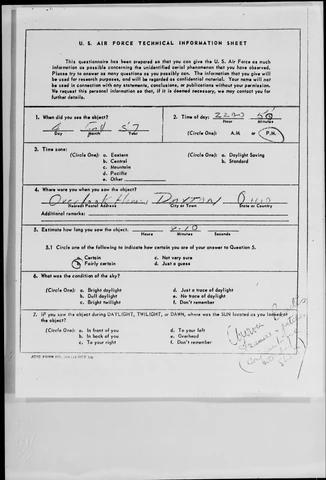 U. S. AIR FORCE TECHNICAL INFORMATION SHEET
This questionnaire has been prepared so that you can give the U. S. Air Force as much
information as possible concerning the unidentified aerial phenomenon that you have observed.
Please try to answer as many questions as you possibly can. The information that you give will
be used for research purposes, and will be regarded as confidential material. Your name will not
be used in connection with any statements, conclusions, or publications without your permission.
We request this personal information so that, if it is deemed necessary, we may contact you for
further details.
1. When did you see the object?
57
Day Month Year
2. Time of day: 50
Hour Minutes
(Circle One): A.M. or P.M.
3. Time zone:
(Circle One): a. Eastern
b. Central
c. Mountain
d. Pacific
e. Other
(Circle One): a. Daylight Saving
b. Standard
4. Where were you when you saw the object?
Dayton Ohio
Nearest Postal Address City or Town State or Country
Additional remarks:
5. Estimate how long you saw the object.
Hours Minutes Seconds
5.1 Circle one of the following to indicate how certain you are of your answer to Question 5.
a. Certain c. Not very sure
b. Fairly certain d. Just a guess
6. What was the condition of the sky?
(Circle One): a. Bright daylight d. Just a trace of daylight
b. Dull daylight e. No trace of daylight
c. Bright twilight f. Don't remember
7. IF you saw the object during DAYLIGHT, TWILIGHT, or DAWN, where was the SUN located as you looked at
the object?
(Circle One): a. In front of you d. To your left
b. In back of you e. Overhead
c. To your right f. Don't remember